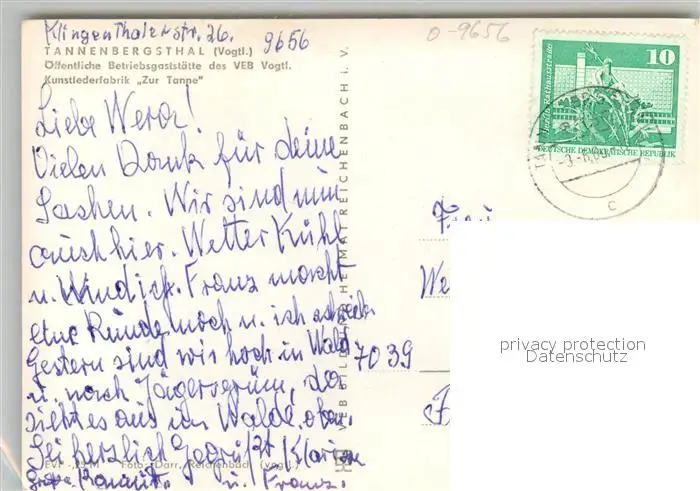 Klingenthalerstr. 26.
9656
0-9656
TANNENBERGSTHAL (Vogtl.)
Öffentliche Betriebsgaststätte des VEB Vogtl.
Kunstlederfabrik „Zur Tanne"
Liebe Wera!
Vielen Dank für deine
Sachen. Wir sind nun
auch hier. Wetter Kühl
u. Windich. Franz macht
eine Runde noch u. ich schreib.
Gestern sind wir hoch in Wald
u. nach Jägersgrün, da
sieht es aus im Walde, oh.
Sei herzlich Gegrüßt
u. Franz.
EVP -,25 M Foto: Darr, Reichenbach (Vogtl.)
VEB BILD UND HEIMAT REICHENBACH i. V.
10
Berlin, Rathausstraße
DEUTSCHE DEMOKRATISCHE REPUBLIK
c
Frau
We
7039
privacy protection
Datenschutz